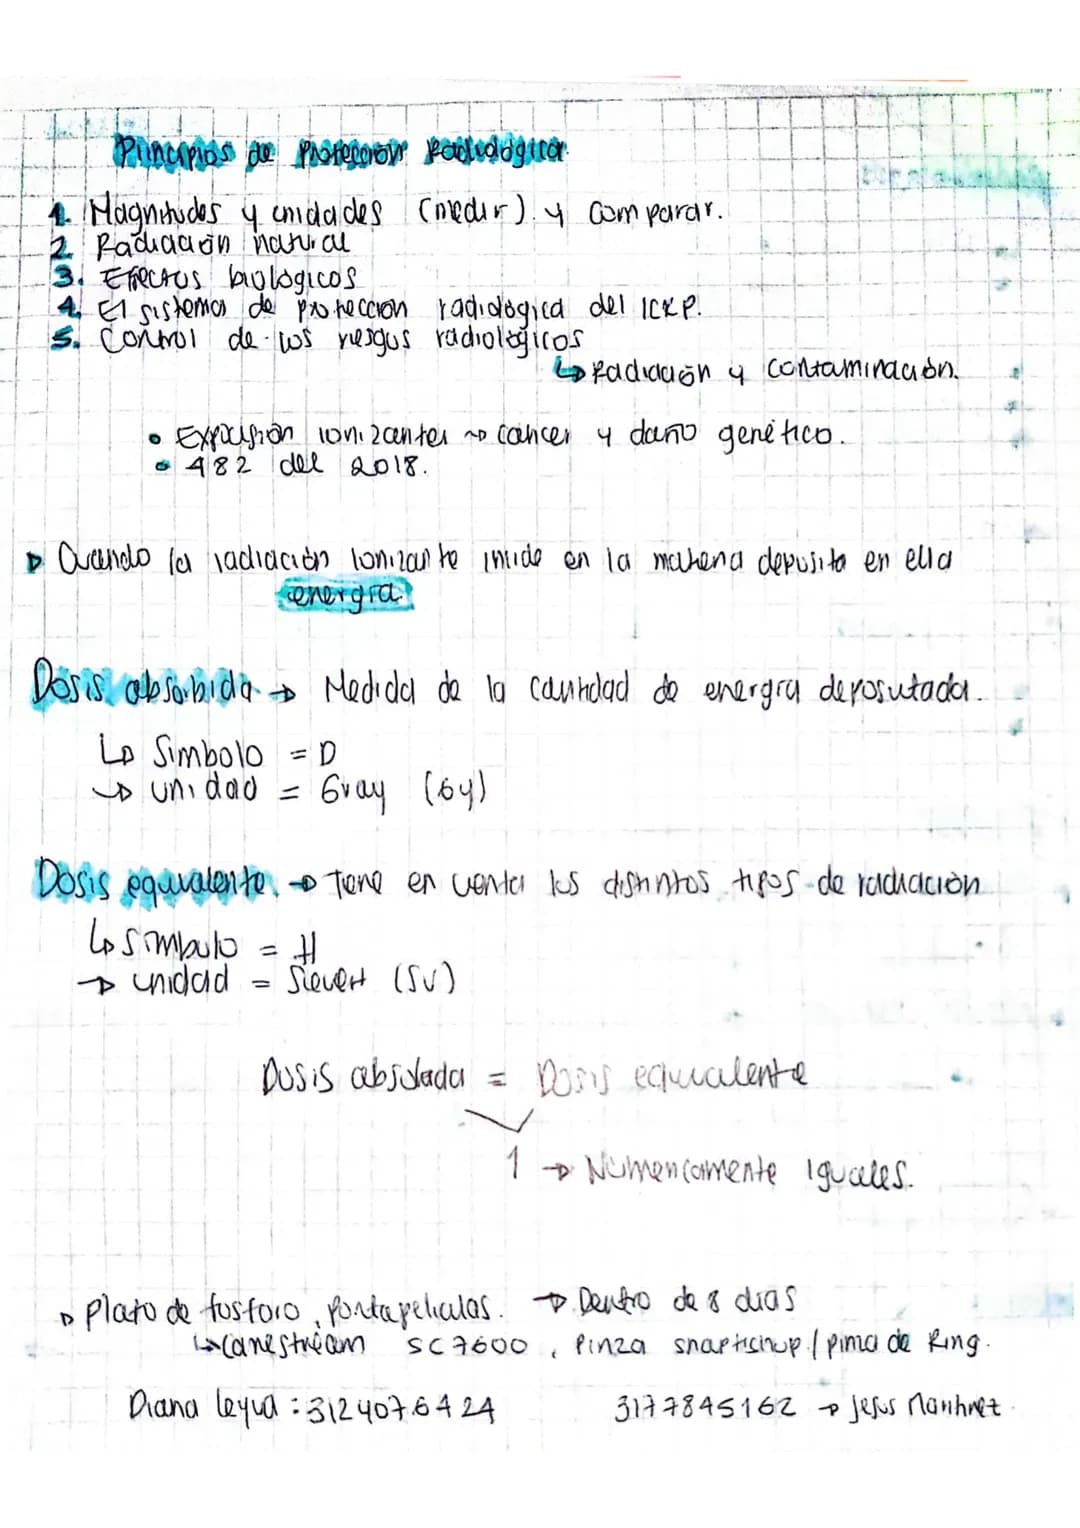 Principios de Protección Radiológica
1. Magnitudes y unidades (medir) y comparar.
2. Radiación natural
3. Efectos biológicos
4. El sistema de protección radiológica del ICRP.
5. Control de los riesgos radiológicos
↳ Radiación y contaminación.
• Exposición ionizantes → cancer y daño genético.
• 482 del 2018.
▷ Cuando la radiación ionizante incide en la materia deposita en ella
energía
Dosis absorbida → Medida de la cantidad de energía depositada.
↳ Simbolo = D
→ unidad = Gray (Gy)
Dosis equivalente. → Tiene en cuenta los distintos tipos de radiación
↳ Simbolo = H
→ unidad = Sievert (Sv)
Dosis absolada = Dosis equivalente
1 → Numericamente iguales.
▷ Plato de fosforo, portapeliculas. → Dentro de 8 dias
↳ Canestream SC7600, Pinza / pinza de Ring.
Diana leyva : 3124076424 3177845162 → Jesus Martinez